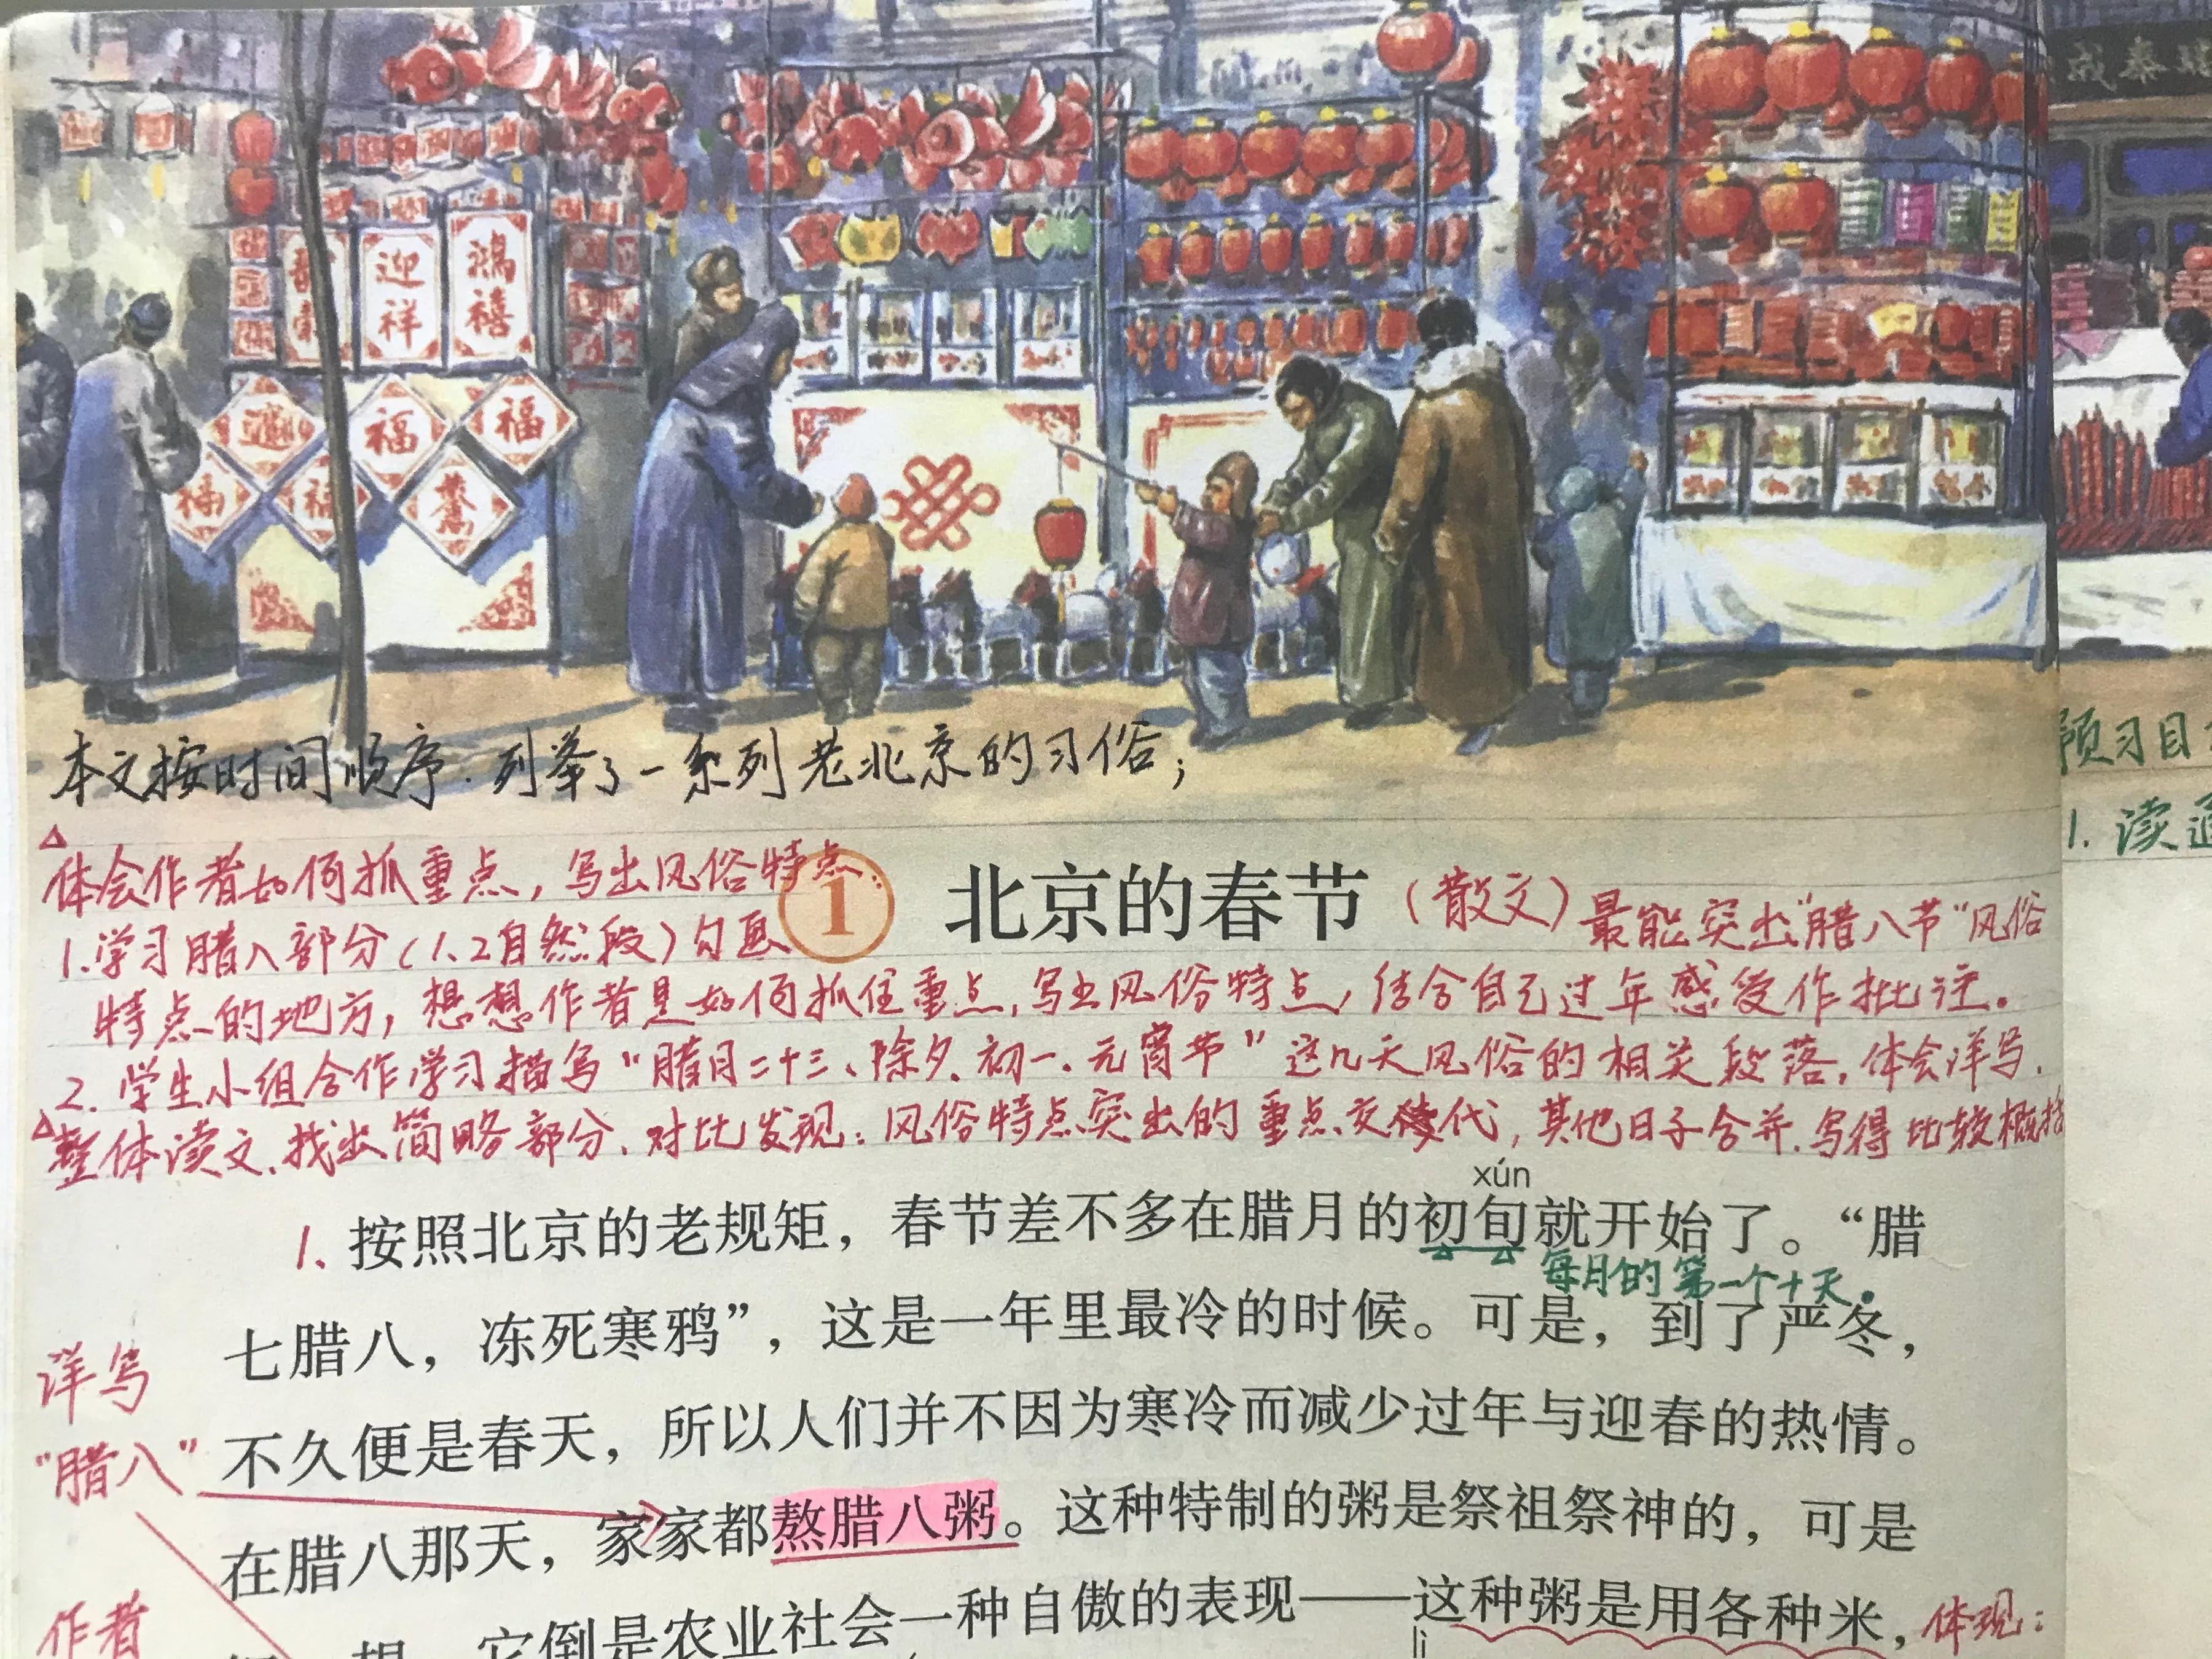 迎祥
鸿禧
福
福
福
福
本文按时间顺序.列举了一系列老北京的习俗;
体会作者如何抓重点,写出风俗特点:
1 北京的春节(散文)最能突出“腊八节”风俗
1.学习腊八部分(1、2自然段)勾画
特点的地方,想想作者是如何抓住重点,写出风俗特点,结合自己过年感受作批注。
2.学生小组合作学习描写“腊月二十三、除夕、初一、元宵节”这几天风俗的相关段落,体会详写.
整体读文、找出简略部分、对比发现:风俗特点突出的重点交代,其他日子合并.写得比较概括
xún
1.按照北京的老规矩,春节差不多在腊月的初旬就开始了。“腊
每月的第一个十天。
七腊八,冻死寒鸦”,这是一年里最冷的时候。可是,到了严冬,
详写
不久便是春天,所以人们并不因为寒冷而减少过年与迎春的热情。
“腊八”
在腊八那天,家家都熬腊八粥。这种特制的粥是祭祖祭神的,可是
作者
想,它倒是农业社会一种自傲的表现——这种粥是用各种米,体现:
lì
预习目
1.读通